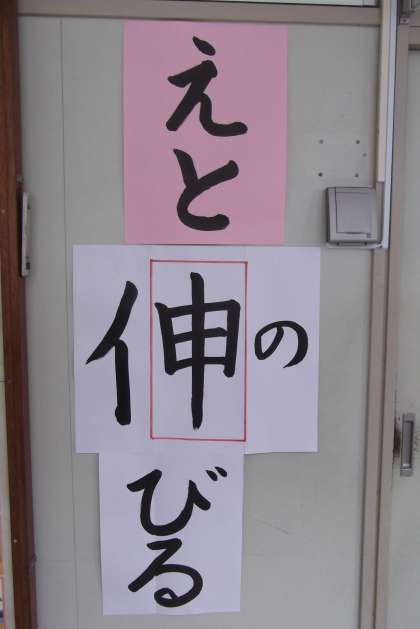 えと
伸の
びる